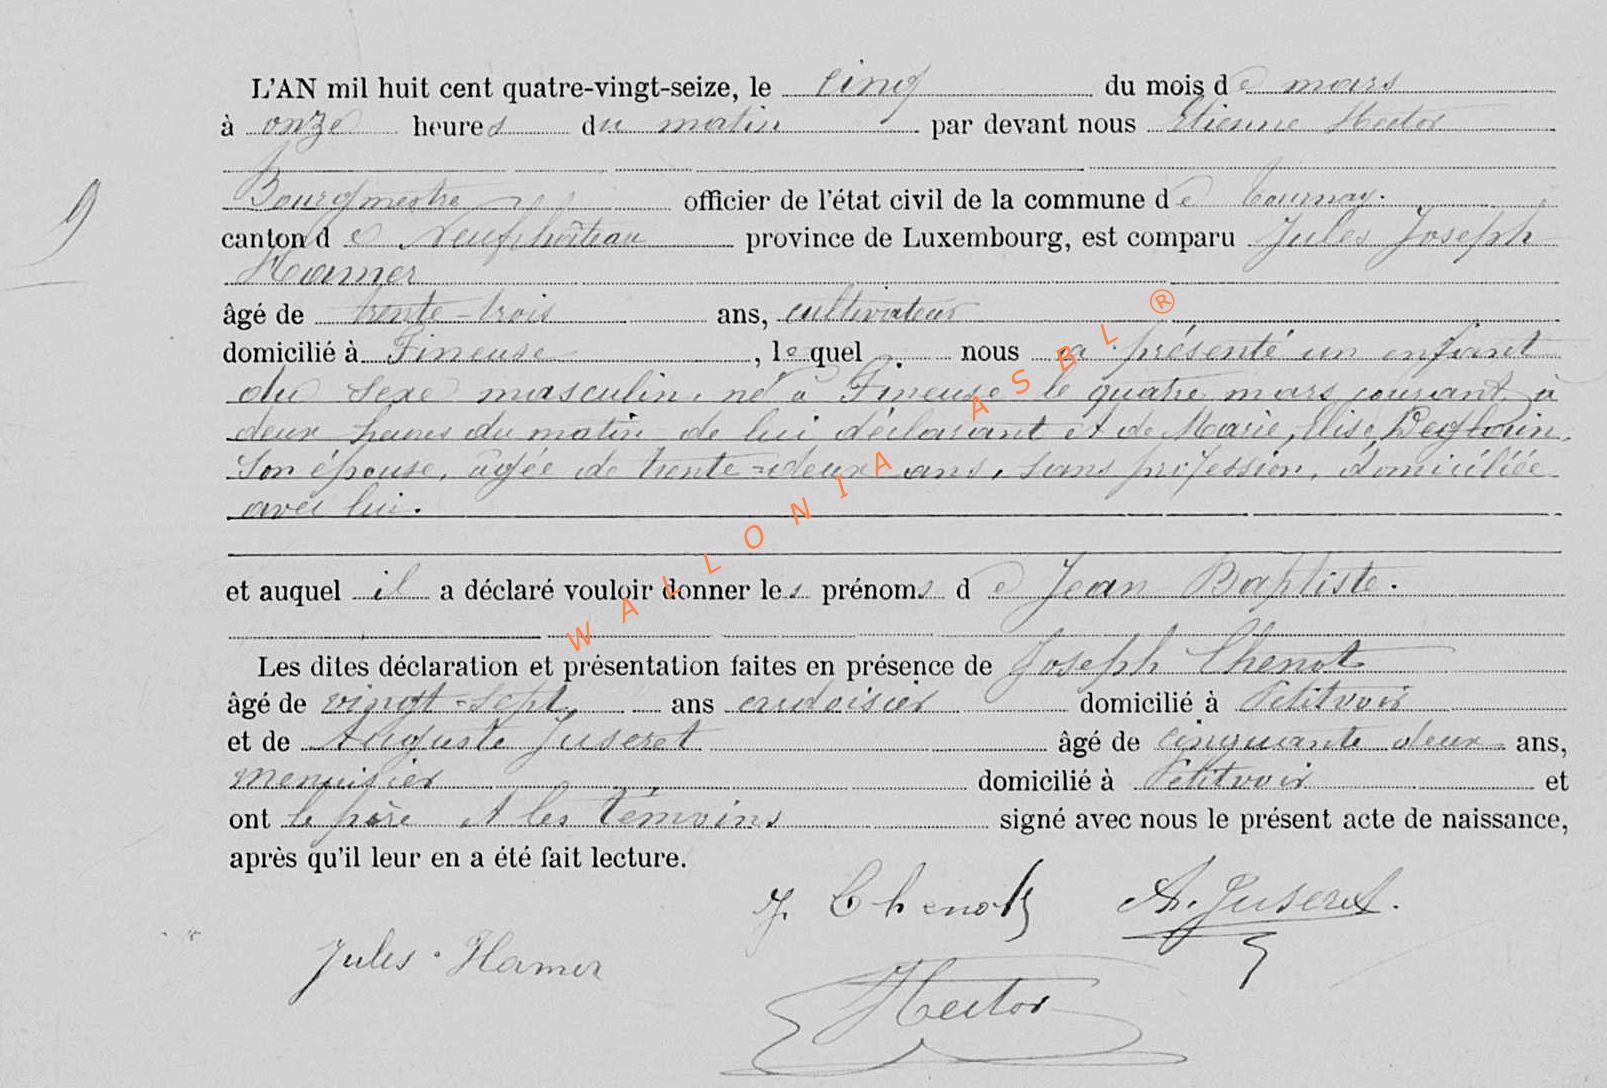 L'AN mil huit cent quatre-vingt-seize, le cinq du mois de mars
à onze heures du matin par devant nous Etienne Hector
Bourgmestre officier de l'état civil de la commune de Tournay.
canton de Neufchâteau province de Luxembourg, est comparu Jules Joseph
9
Hamer
âgé de trente-trois ans, cultivateur
domicilié à Fineuse, lequel nous a présenté un enfant
du sexe masculin, né à Fineuse le quatre mars courant, à
deux heures du matin de lui déclarant et de Marie, Elise,
Son épouse, âgée de trente-deux ans, sans profession, domiciliée
avec lui.
et auquel il a déclaré vouloir donner les prénoms de Jean Baptiste.
Les dites déclaration et présentation faites en présence de Joseph Chenot
âgé de vingt-sept ans ardoisier domicilié à Petitvoir
et de Auguste Juseret âgé de cinquante deux ans,
menuisier domicilié à Petitvoir et
ont le père et les témoins signé avec nous le présent acte de naissance,
après qu'il leur en a été fait lecture.
J. Chenot A. Juseret.
Jules Hamer
Hector
WALLONIA ASBL ®